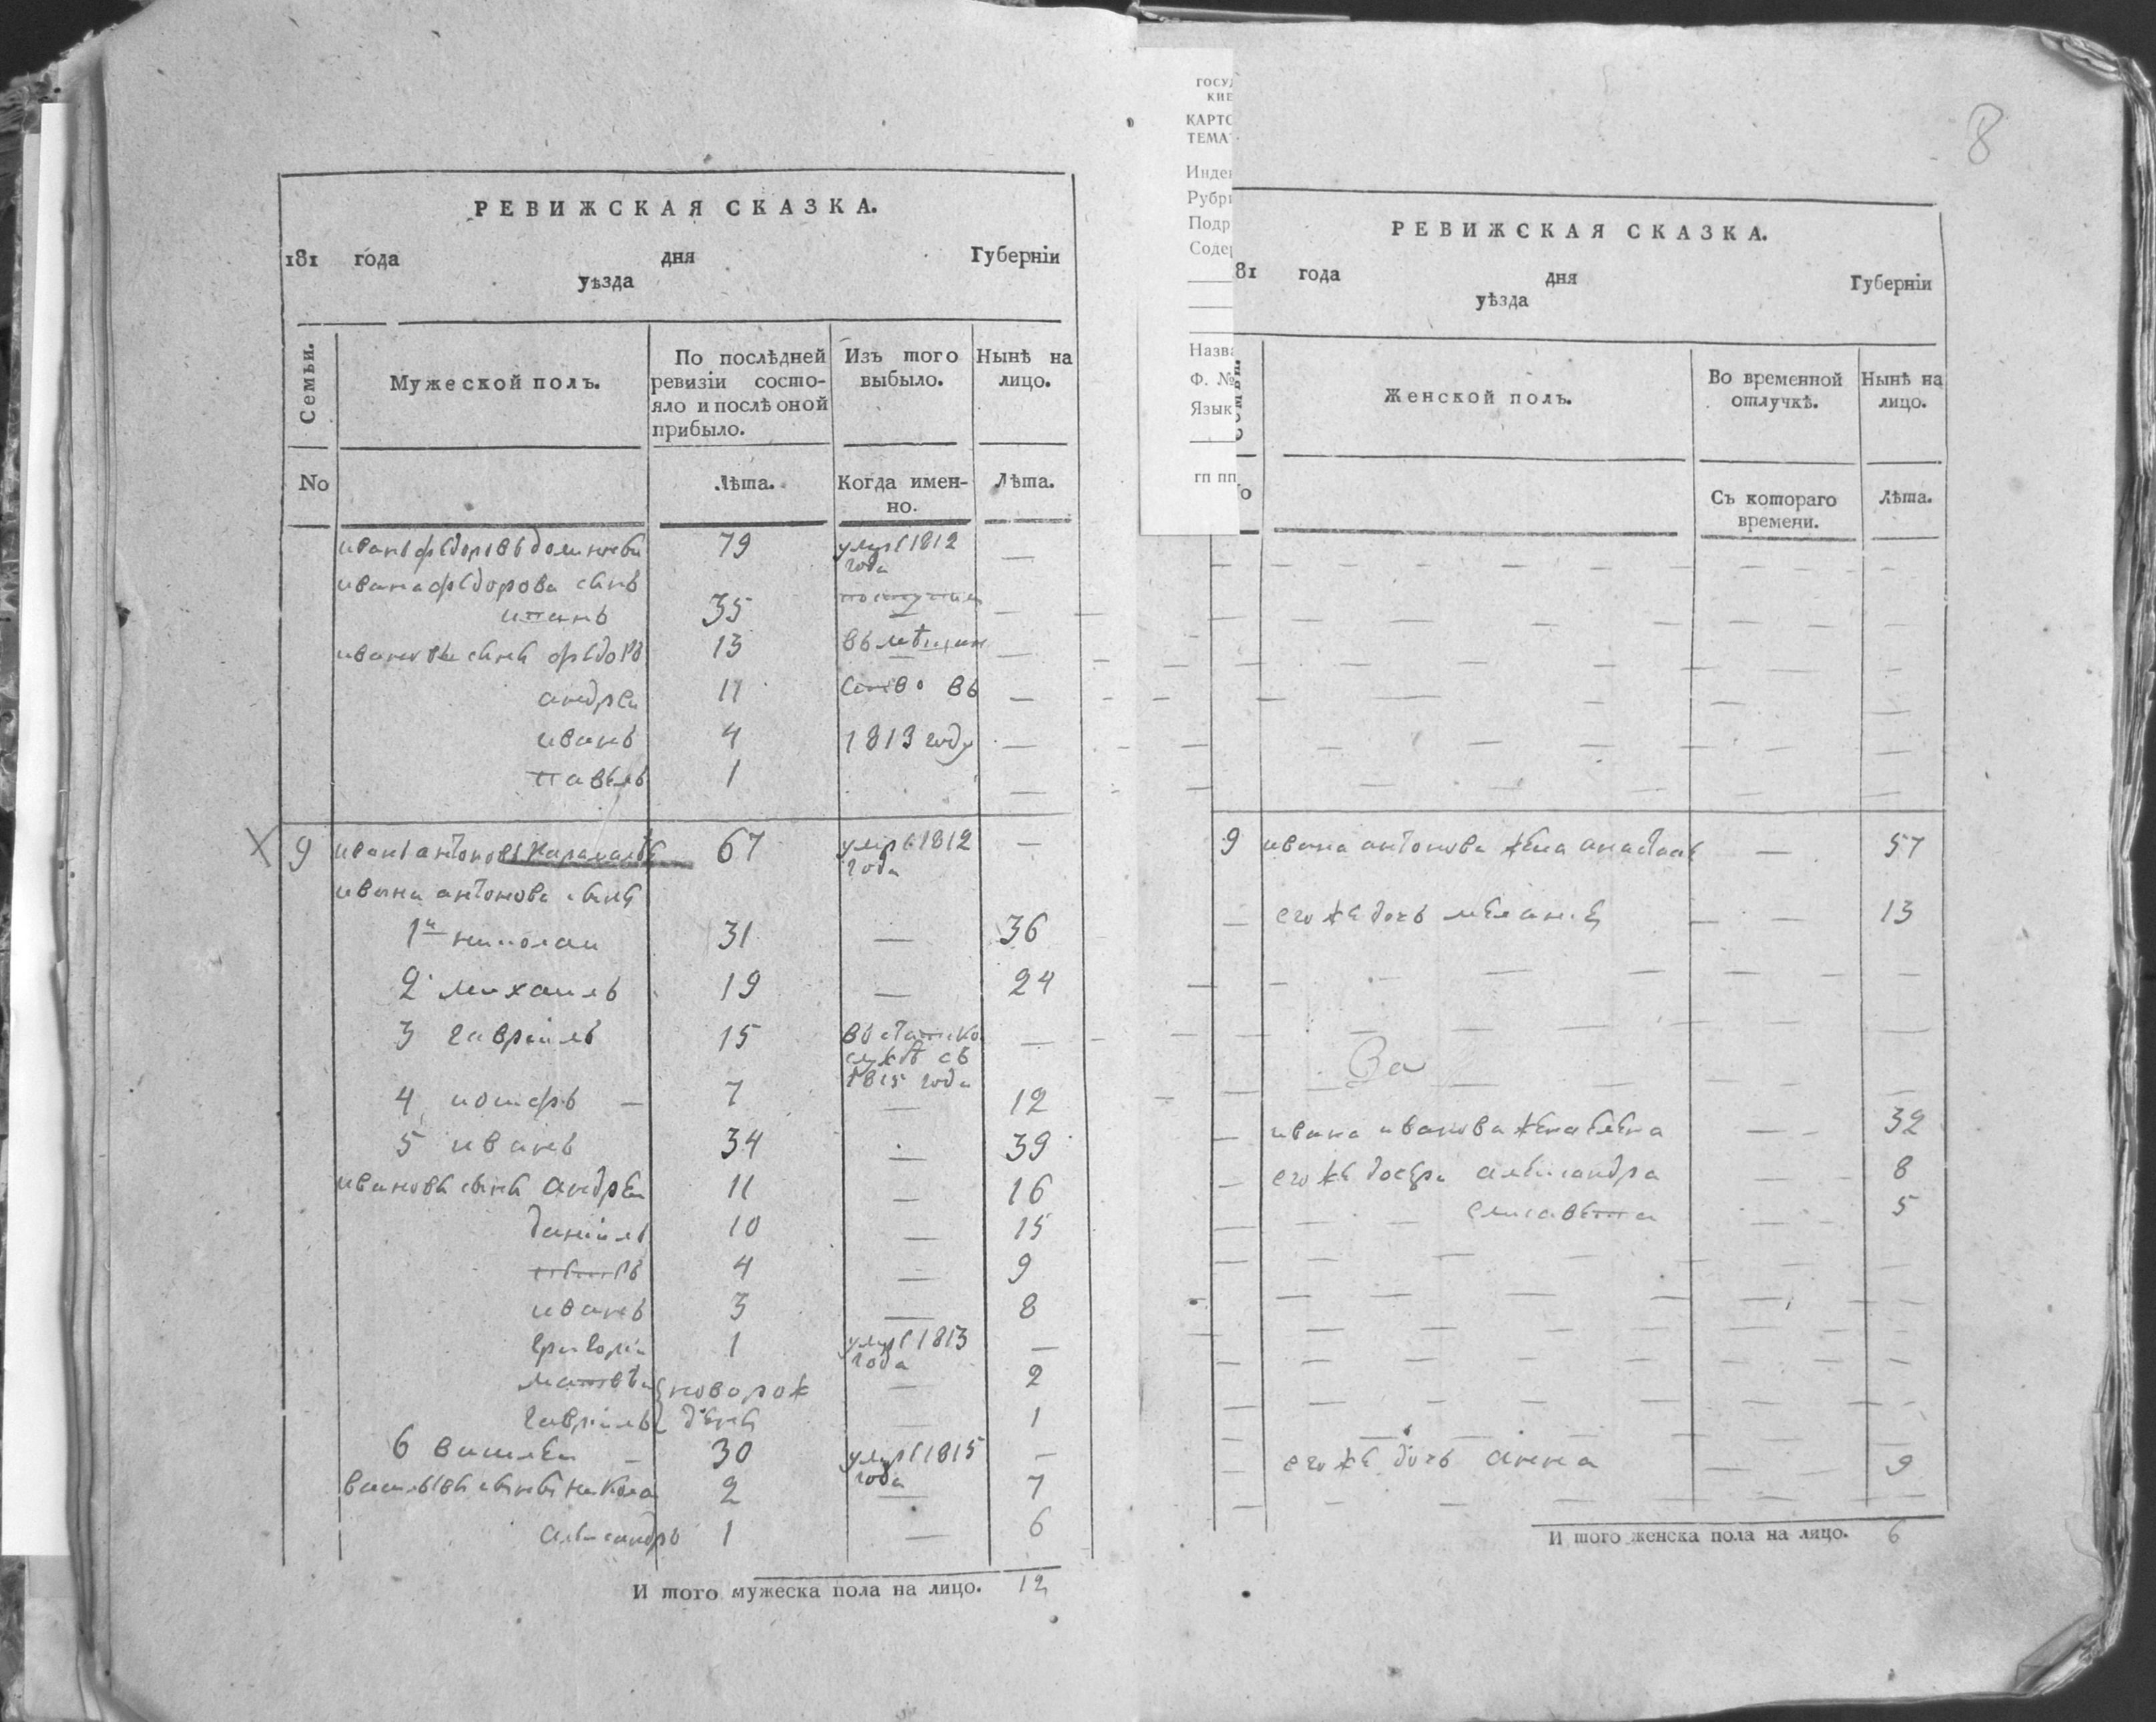 РЕВИЖСКАЯ СКАЗКА.
181 года дня Губерніи
уѣзда
Семьи.
Мужеской полъ.
По послѣдней ревизіи состо-
яло и послѣ оной
прибыло.
Изъ того
выбыло.
Нынѣ на
лицо.
No
Лѣта.
Когда имен-
но.
Лѣта.
иванъ федоровъ 79 умре 1812 —
года
ивана федорова сынъ
35 —
ивановы сыны федоръ 13 —
андреи 11 въ —
иванъ 4 1813 году —
павелъ 1 —
9 иванъ антоновъ 67 умре 1812 —
года
ивана антонова сыны
1й николаи 31 — 36
2 михаилъ 19 — 24
3 гавріилъ 15 —
съ
1815 года
4 — 7 — 12
5 иванъ 34 — 39
ивановы сыны андреи 11 — 16
даніилъ 10 — 15
4 — 9
иванъ 3 — 8
григоріи 1 умре 1813 —
года
матвѣи новорож — 2
гавріилъ дены — 1
6 василеи — 30 умре 1815 —
года
василевы сыны никола 2 — 7
александръ 1 — 6
И того мужеска пола на лицо. 12
ГОСУД
КИЕ
КАРТО
ТЕМА
Индек
Рубри
Подр
Содер
Назва
Ф. №
Язык
гп пп
8
РЕВИЖСКАЯ СКАЗКА.
81 года дня Губерніи
уѣзда
Женской полъ.
Во временной
отлучкѣ.
Нынѣ на
лицо.
Съ котораго
времени.
Лѣта.
9 ивана антонова жена — 57
его же дочь меланіе — 13
ивана иванова жена елена — 32
его же дочери александра — 8
елисавета 5
его же дочь анна — 9
И того женска пола на лицо. 6